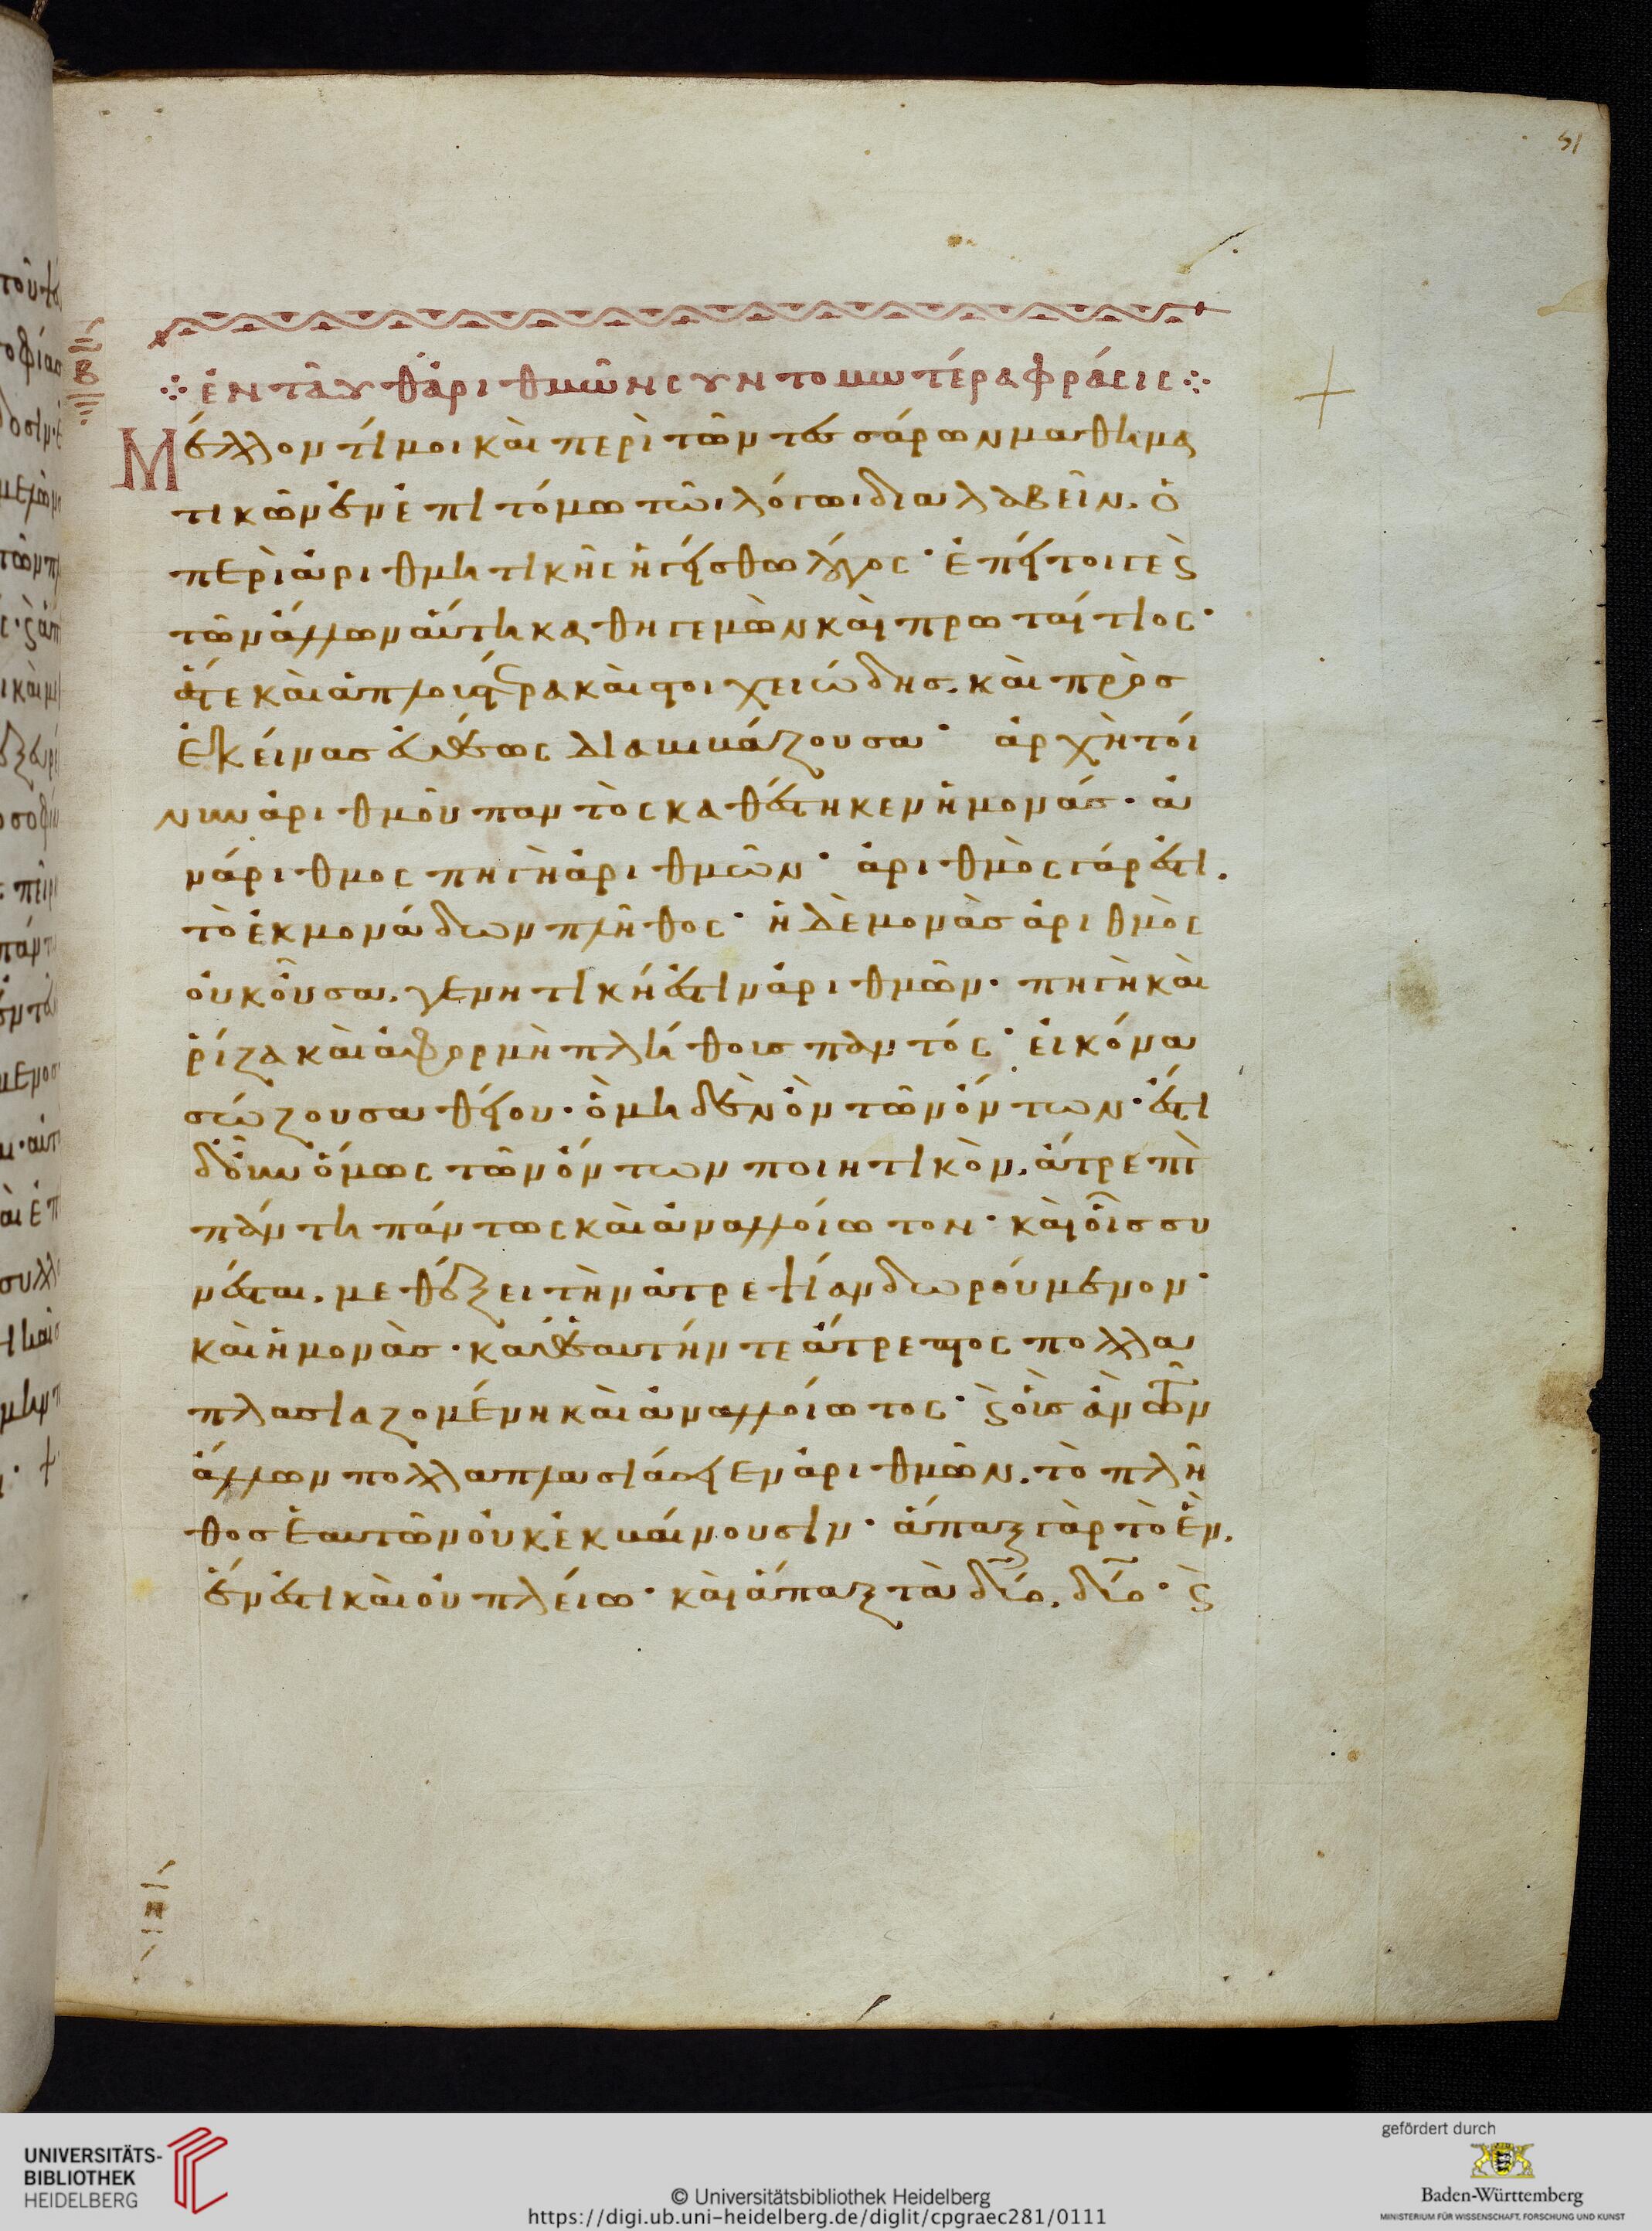 51
Β
ἐνταῦθ' ἀριθμῶν συντομωτέρα φράσις
Μέλλοντί μοι καὶ περὶ τῶν τεσσάρων μαθημα
τικῶν ἐν ἐπιτόμω τῶι λόγωι διαλαβεῖν. ὁ
περὶ ἀριθμητικῆς ἡγείσθω λόγος· ἐπεί τοι γε καὶ
τῶν ἄλλων αὕτη καθηγεμὼν καὶ πρωταίτιος·
ἅτε καὶ ἁπλουστέρα καὶ στοιχειώδης. καὶ πρὸς
ἐκείνας εὐθέως διαβιβάζουσα· ἀρχὴ τοί
νυν ἀριθμοῦ παντὸς καθέστηκεν ἡ μονάς· ἀ
νάριθμος πηγὴ ἀριθμῶν· ἀριθμὸς γάρ ἐστι.
τὸ ἐκ μονάδων πλῆθος· ἡ δὲ μονὰς ἀριθμὸς
οὐκ οὖσα. γεννητική ἐστιν ἀριθμῶν· πηγὴ καὶ
ῥίζα καὶ ἀφορμὴ πλήθους παντός· εἰκόνα
σώζουσα θείου· ὃ μηδὲν ὂν τῶν ὄντων· ἔστι
δ' οὖν ὅμως τῶν ὄντων ποιητικὸν. ἄτρεπτ
πάντη πάντως καὶ ἀναλλοίωτον· καὶ οἷς συ
νέσται. μεθέξει τὴν ἀτρεψίαν δωρούμενον·
καὶ ἡ μονὰς· καθ' ἑαυτήν τε ἄτρεπτος πολλα
πλασιαζομένη καὶ ἀναλλοίωτος· καὶ οἷς ἂν τῶν
ἄλλων πολλαπλασιάσειεν ἀριθμῶν. τὸ πλῆ
θος ἑαυτῶν οὐκ ἐκβαίνουσιν· ἅπαξ γὰρ τὸ ἓν.
ἕν ἐστι καὶ οὐ πλείω· καὶ ἅπαξ τὰ δύο. δύο· καὶ
UNIVERSITÄTS-
BIBLIOTHEK
HEIDELBERG
© Universitätsbibliothek Heidelberg
https://digi.ub.uni-heidelberg.de/diglit/cpgraec281/0111
gefördert durch
Baden-Württemberg
MINISTERIUM FÜR WISSENSCHAFT, FORSCHUNG UND KUNST